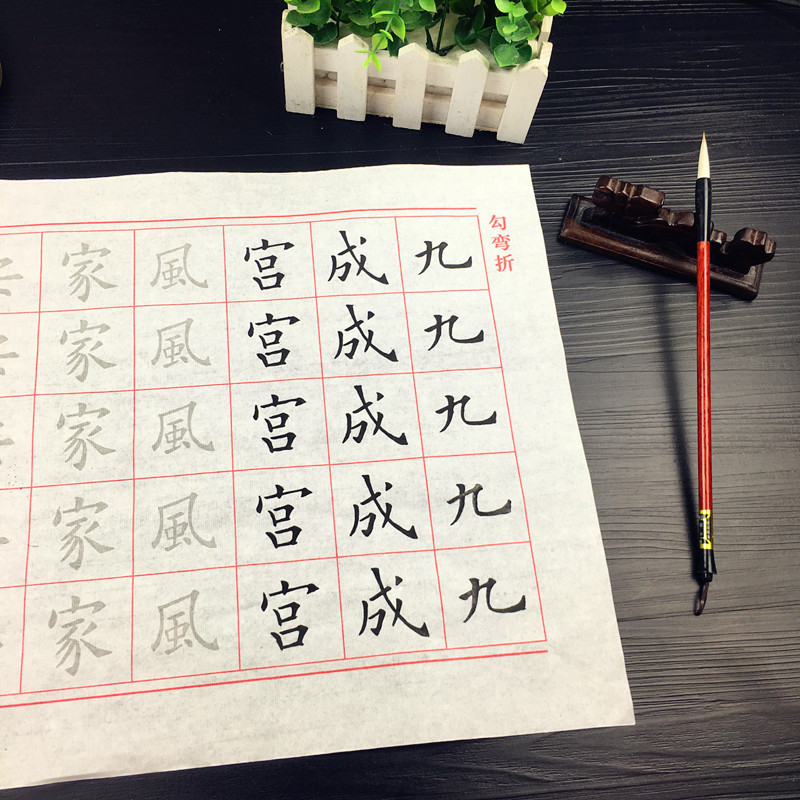 勾弯折
九九九九九
成成成成成
宫宫宫宫宫
風風風風風
家家家家家